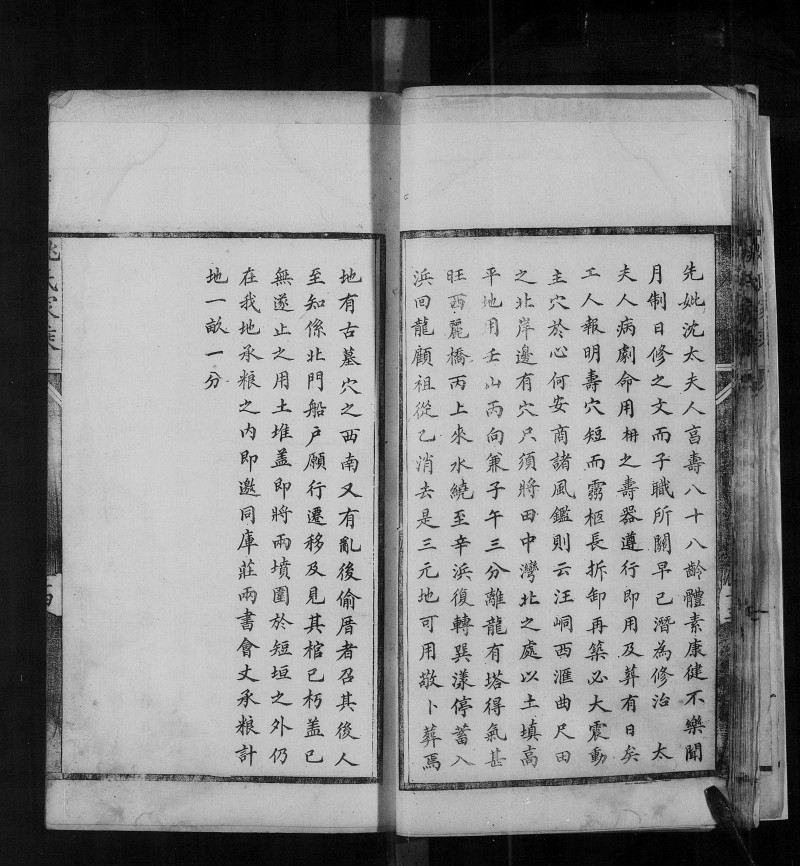 先妣沈太夫人享壽八十八齡體素康健不樂聞
月制日修之文而子職所關早已潛為修治　太
夫人病劇命用枏之壽器遵行即用及葬有日矣
工人報明壽穴短而靈柩長拆卸再築必大震動
主穴於心何安商諸風鑑則云汪峒西滙曲尺田
之北岸邊有穴只須將田中灣北之處以土填高
平地用壬山丙向兼子午三分離龍有塔得氣甚
旺西麗橋丙上來水繞至辛浜復轉巽漾停蓄入
浜回龍顧祖從已消去是三元地可用敬卜葬焉
地有古墓穴之西南又有亂後偷厝者召其後人
至知係北門船户願行遷移及見其棺已朽蓋已
無遂止之用土堆盖即將兩墳圍於短垣之外仍
在我地承粮之内即邀同庫莊兩書會丈承粮計
地一畝一分